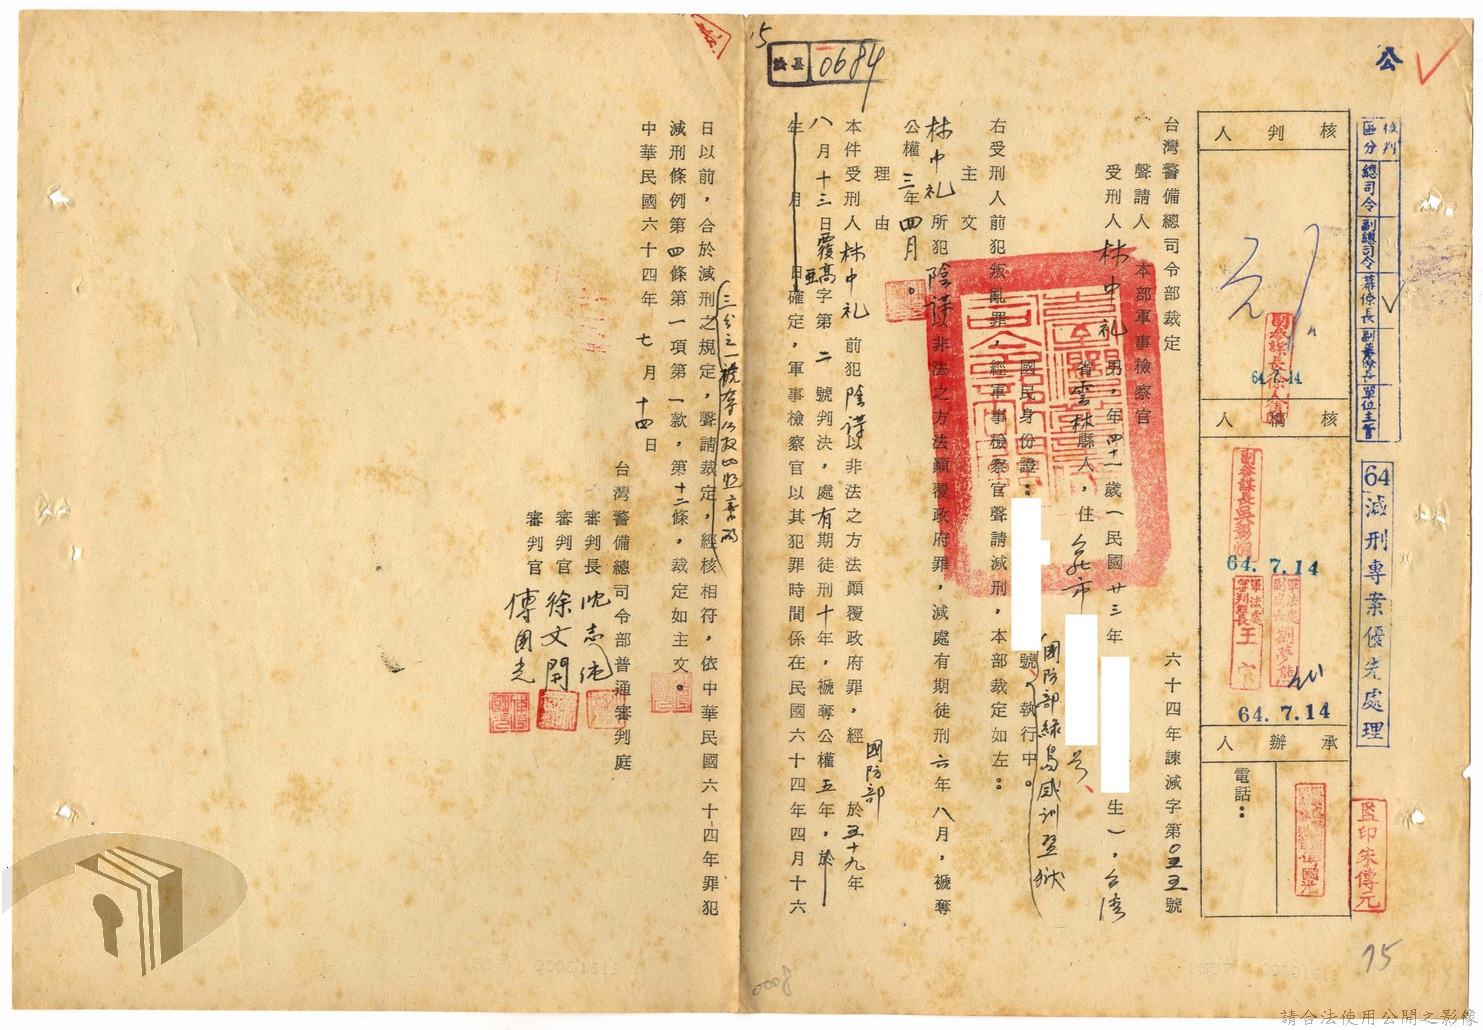 公
0684
核判區分 總司令 副總司令 幕僚長 副幕僚長 單位主管
64減刑專案優先處理
監印朱傳元
75
核判人
64.7.14
核稿人
64.7.14
64.7.14
承辦人
電話：
台灣警備總司令部裁定 六十四年諫減字第〇五五號
聲請人 本部軍事檢察官
受刑人 林中礼 男，年四十一歲（民國廿三年 生），台湾
省雲林縣人，住台北市 号、
國民身份證： 號、執行中。
國防部綠島感訓監獄
右受刑人前犯叛亂罪，經軍事檢察官聲請減刑，本部裁定如左：
主文
林中礼所犯陰謀以非法之方法顛覆政府罪，減處有期徒刑六年八月，褫奪
公權三年四月。
理由
本件受刑人林中礼前犯陰謀以非法之方法顛覆政府罪，經國防部於五十九年
八月十三日覆高亞字第二號判決，處有期徒刑十年，褫奪公權五年，於
年 月 日確定，軍事檢察官以其犯罪時間係在民國六十四年四月十六
日以前，合於減刑之規定，聲請裁定，經核相符，依中華民國六十四年罪犯
減刑條例第四條第一項第一款，第十二條，裁定如主文。
中華民國六十四年七月十四日
台灣警備總司令部普通審判庭
審判長 沈志純
審判官 徐文開
審判官 傅國光
0008
請合法使用公開之影像